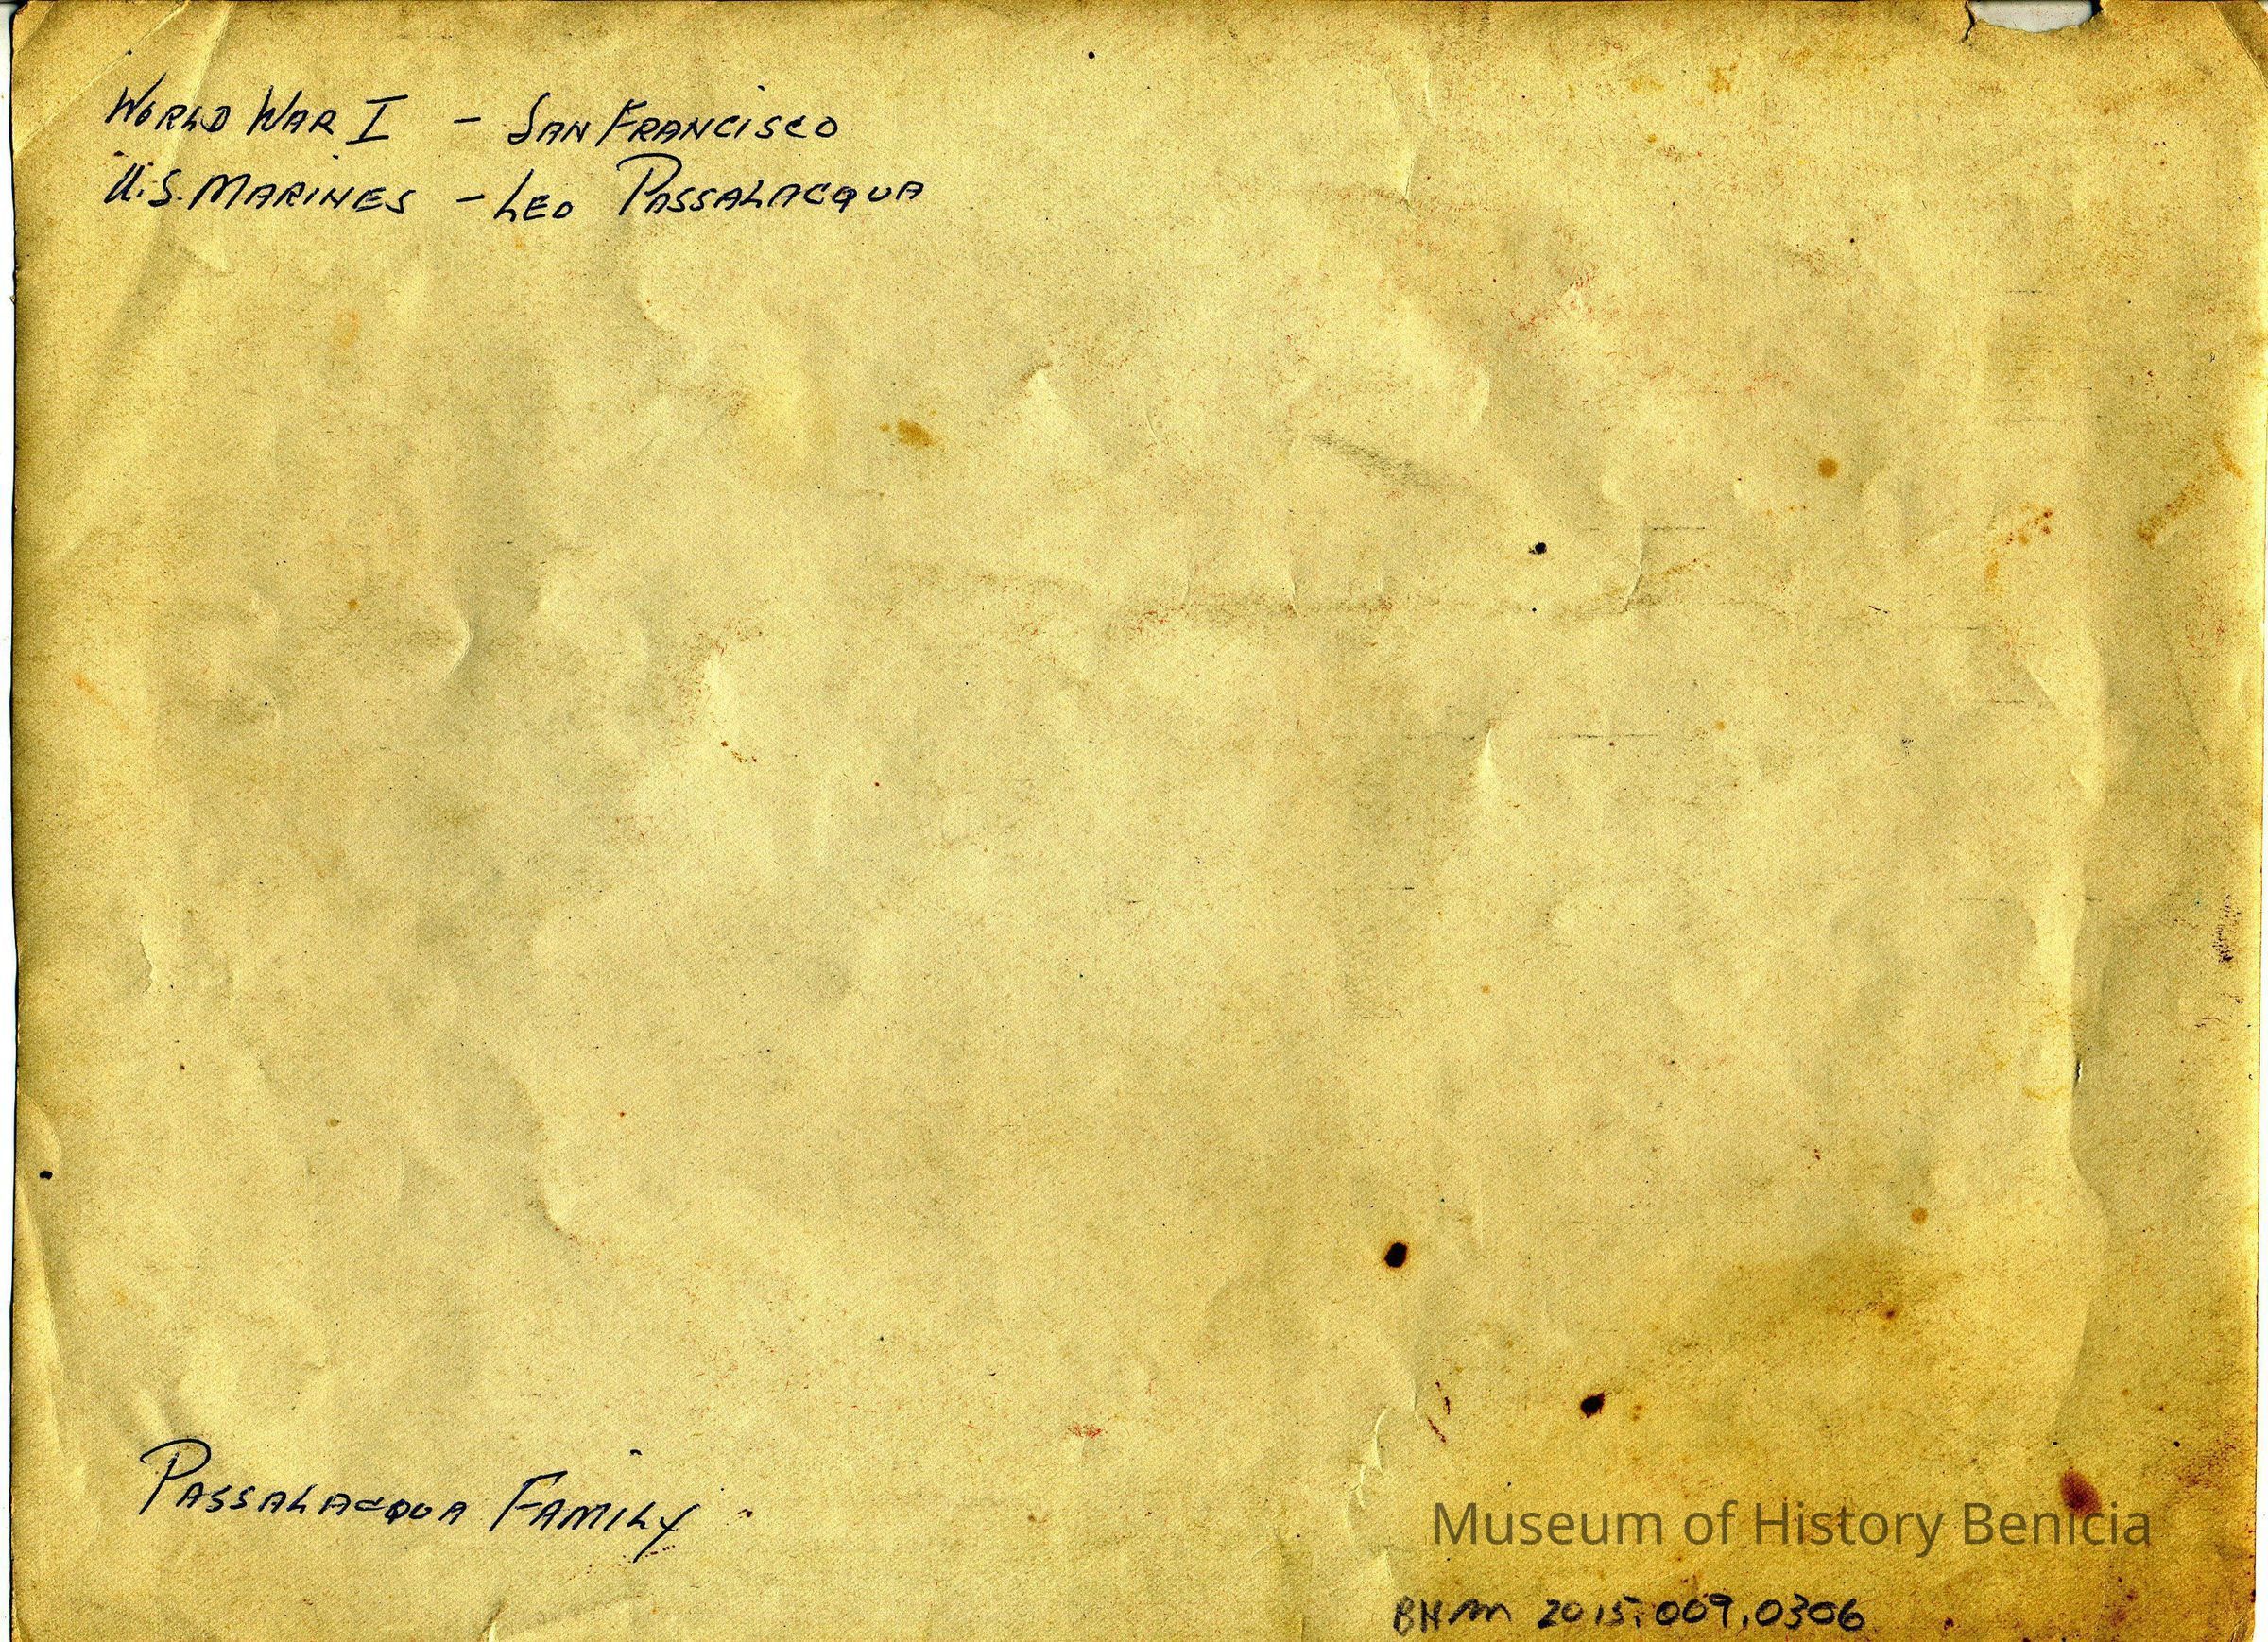 WORLD WAR I - SAN FRANCISCO
U.S. MARINES - LEO PASSALACQUA
PASSALACQUA FAMILY
Museum of History Benicia
BHM 2015.009.0306